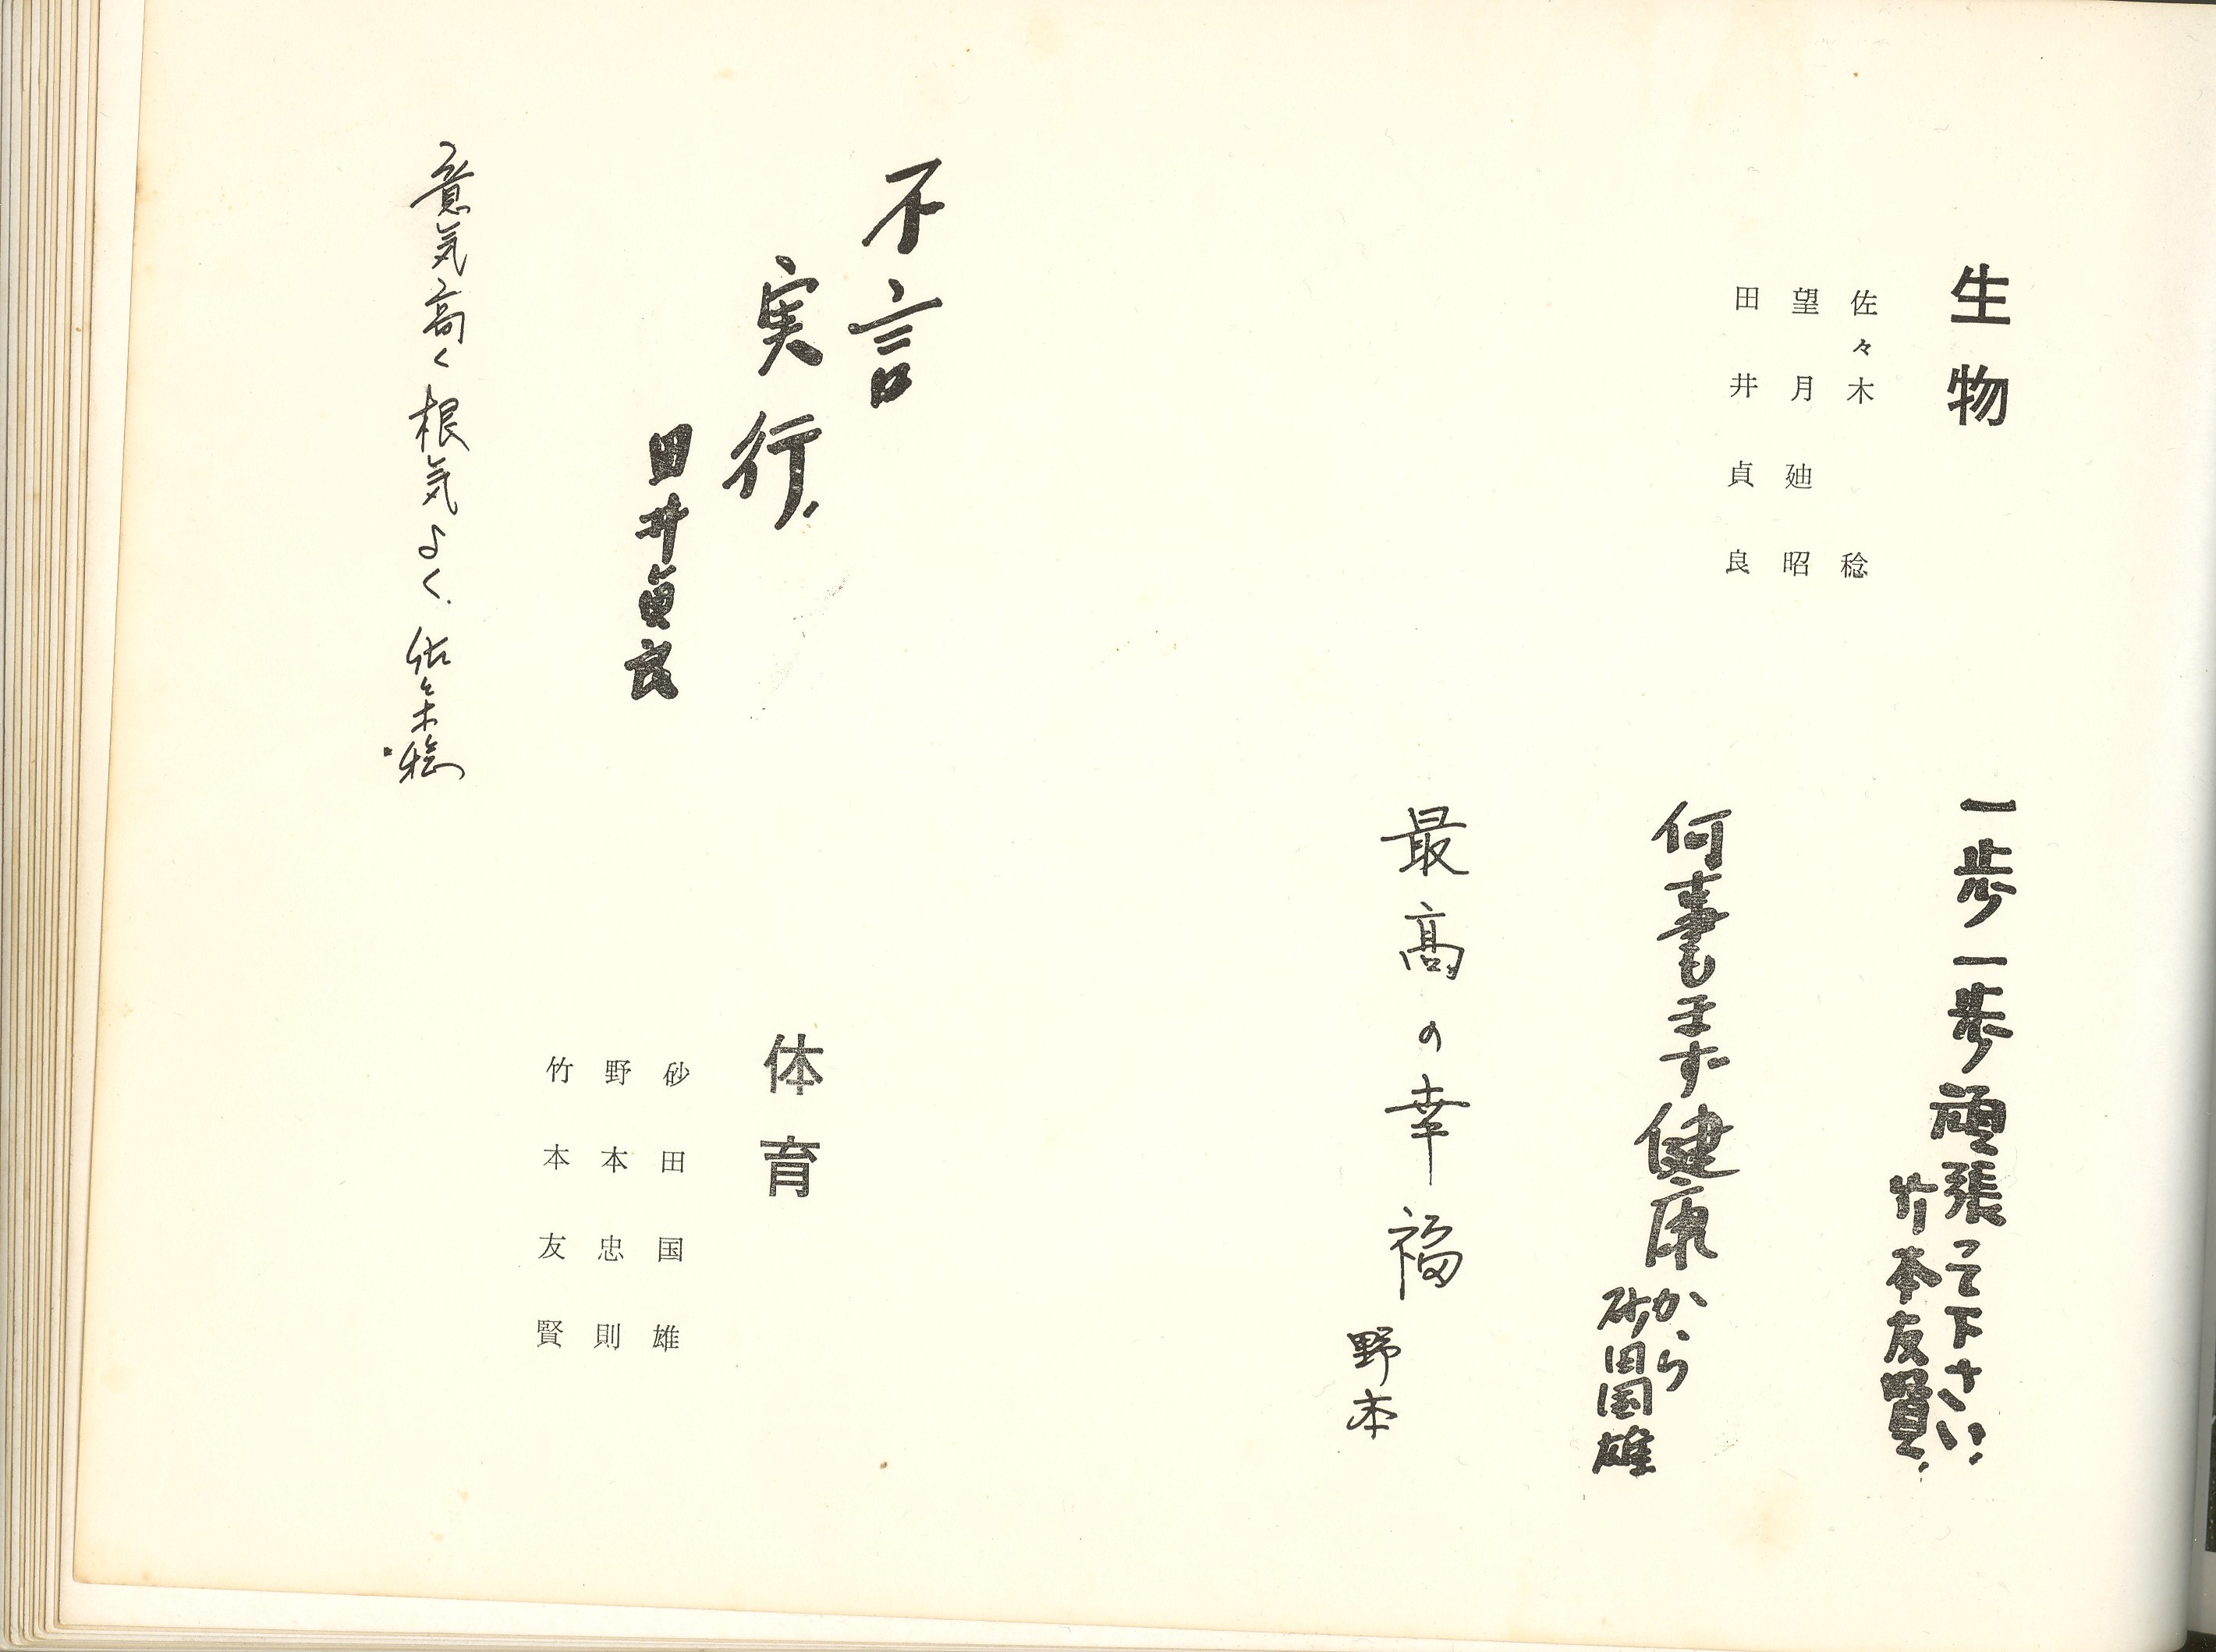 生物
佐々木 稔
望月廸昭
田井貞良
不言
実行、
田井貞良
意気高く根気よく、佐々木稔
一歩一歩頑張って下さい、
竹本友賢、
何事もまず健康から
砂田国雄
最高の幸福
野本
体育
砂田国雄
野本忠則
竹本友賢